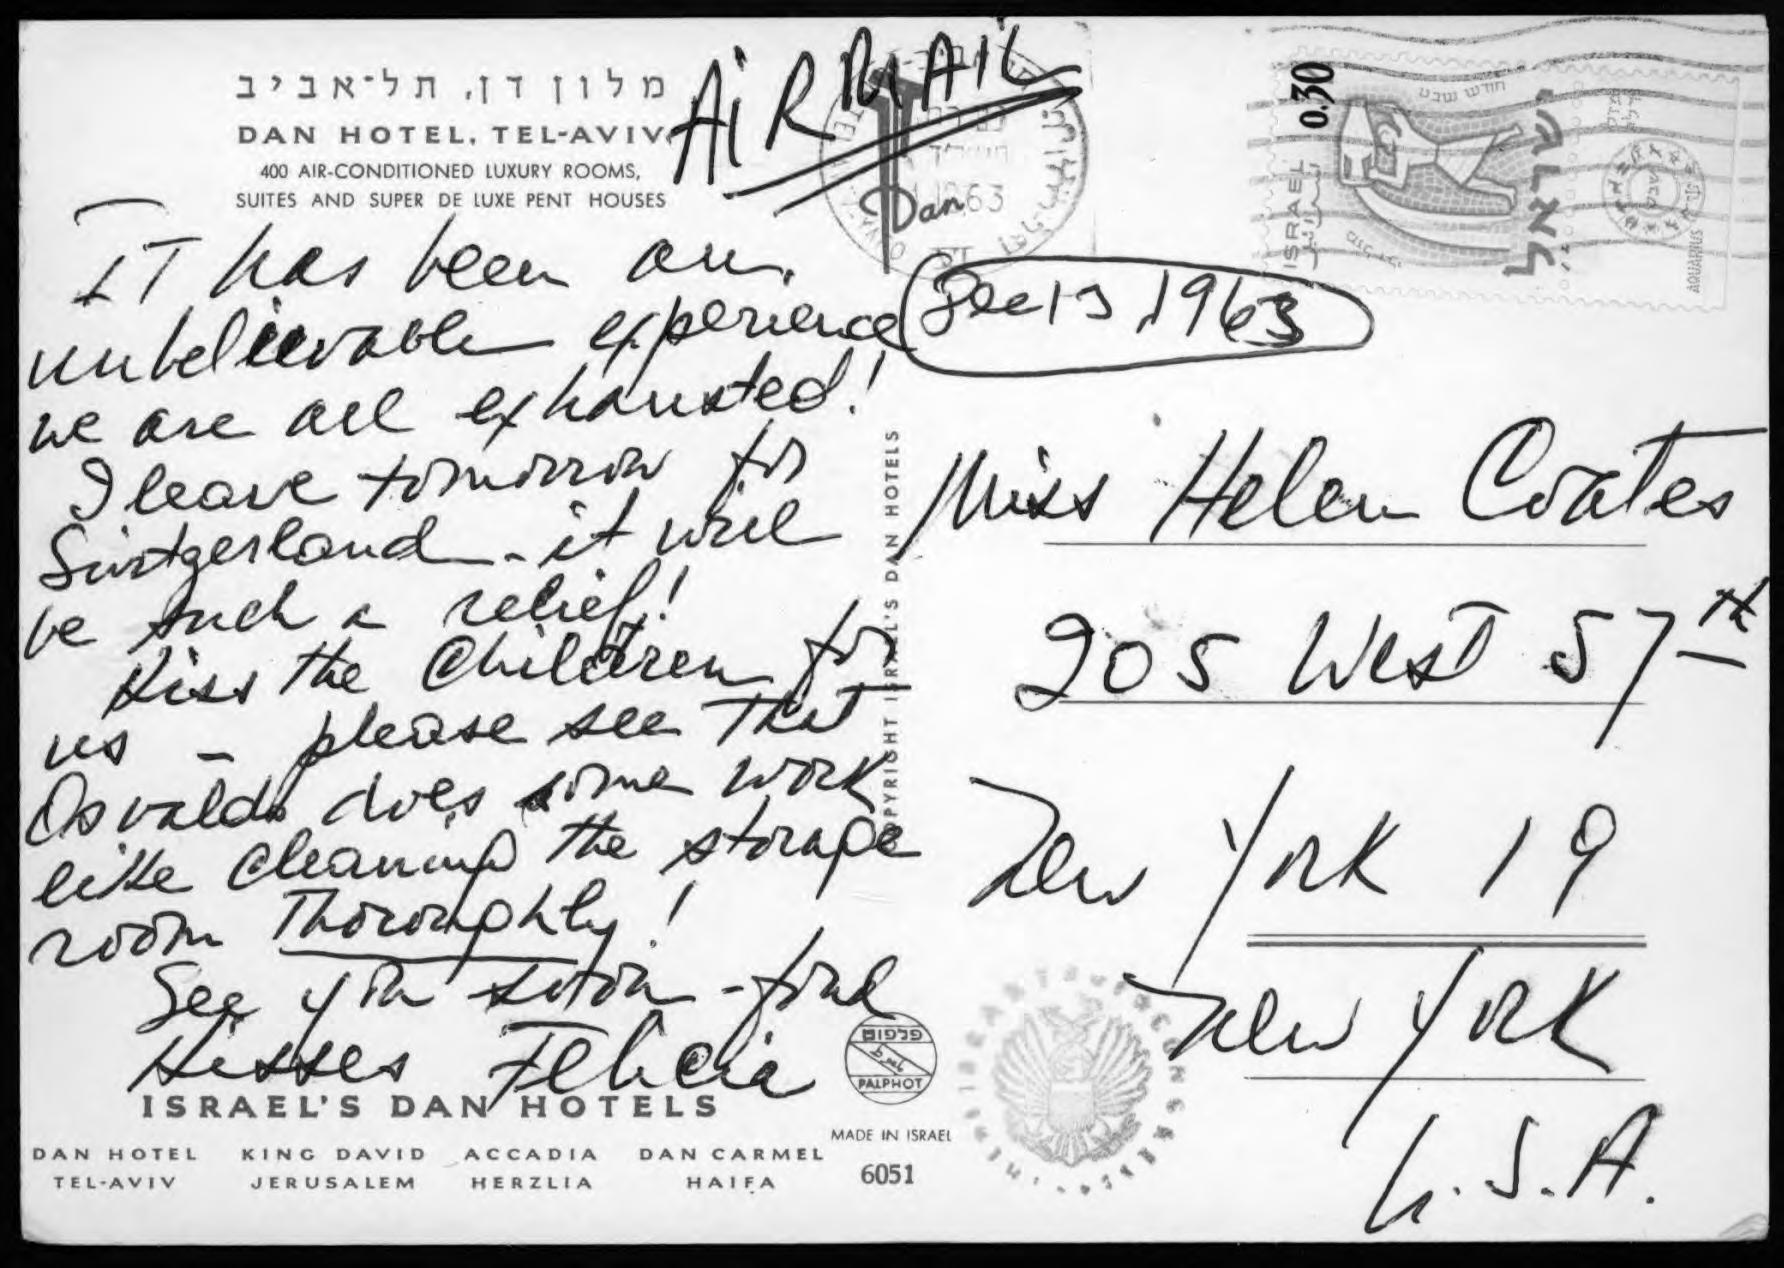 מלון דן, תל־אביב
DAN HOTEL, TEL-AVIV
400 AIR-CONDITIONED LUXURY ROOMS,
SUITES AND SUPER DE LUXE PENT HOUSES
AIRMAIL
Dan
63
0.30
ISRAEL
ישראל
חודש שבט
AQUARIUS
Dec 13, 1963
IT has been an
unbelievable experience
we are all exhausted!
I leave tomorrow for
Switzerland - it will
be such a relief!
Kiss the children for
us - please see that
Osvaldo does some work
like cleaning the storage
room Thoroughly!
See you soon - fond
Kisses Felicia
COPYRIGHT ISRAEL'S DAN HOTELS
Miss Helen Coates
205 West 57th
New York 19
New York
U.S.A.
ISRAEL'S DAN HOTELS
DAN HOTEL KING DAVID ACCADIA DAN CARMEL
TEL-AVIV JERUSALEM HERZLIA HAIFA
פלפוט
PALPHOT
MADE IN ISRAEL
6051